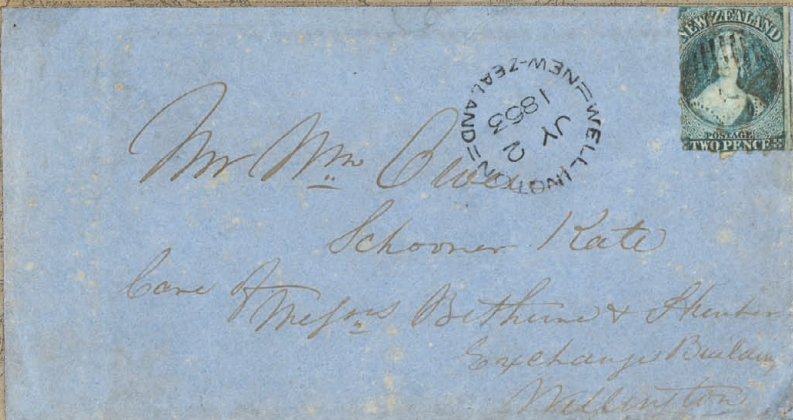 NEW ZEALAND
POSTAGE
TWO PENCE
WELLINGTON
NEW-ZEALAND
JY 2
1853
Mr Wm Owen
Schooner Kate
Care of
Messrs Bethune & Hunter
Exchange Buildings
Wellington